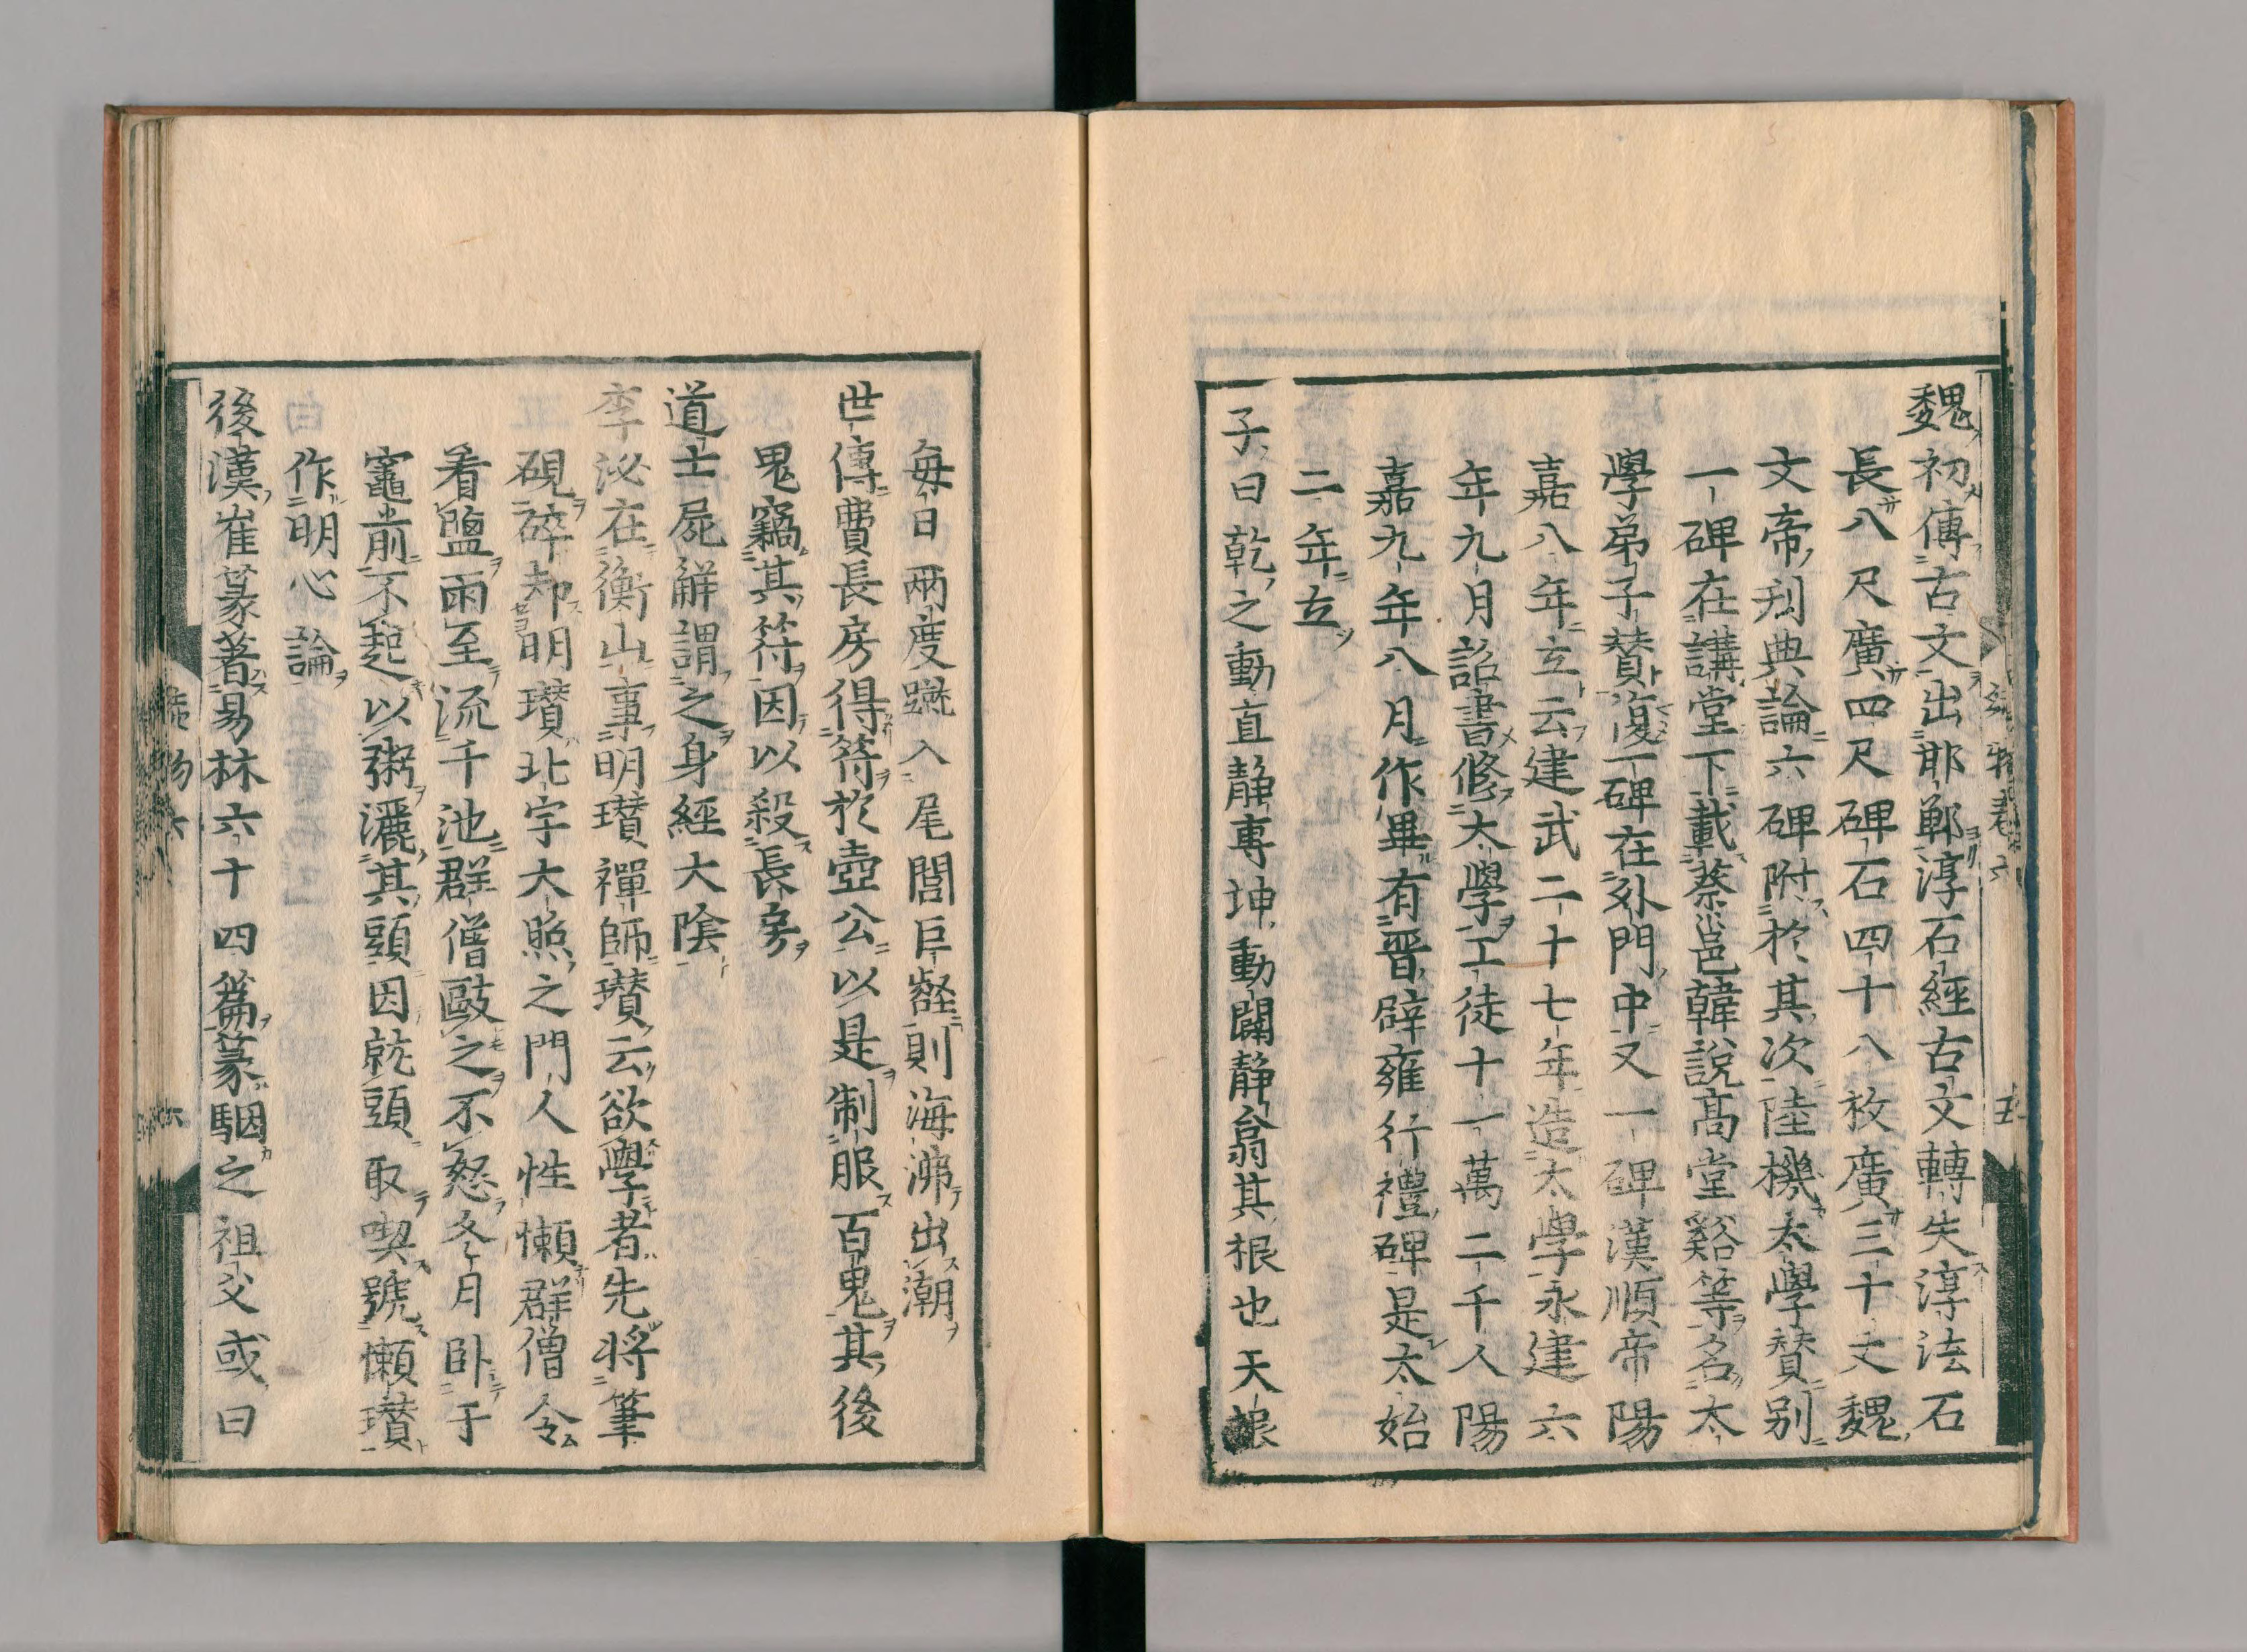 魏初傳古文出邯鄲淳石經古文轉失淳法石
長八尺廣四尺碑石四十八枚廣三十丈魏
文帝刋典論六碑附於其次陸機太學賛別
一碑在講堂下載蔡邕韓說高堂谿等名太
學弟子賛復一碑在外門中又一碑漢順帝陽
嘉八年立云建武二十七年造太學永建六
年九月詔書修太學工徒十一萬二千人陽
嘉九年八月作畢有晋辟雍行禮碑是太始
二年立
子曰乾之動直静專坤動闢静翕其根也天根
每日兩度蹴入尾閭巨壑則海沸出潮
世傳費長房得符於壺公以是制服百鬼其後
鬼竊其符因以殺長房
道士屍解謂之身經大陰
李泌在衡山事明瓚禪師瓚云欲學者先將筆
硯碎却明瓚北宗大照之門人性懶群僧令
看鹽雨至流千池群僧毆之不怒冬月卧于
竈前不起以粥灑其頭因就頭取喫號懶瓚
作明心論
後漢崔篆著易林六十四篇篆駰之祖父或曰